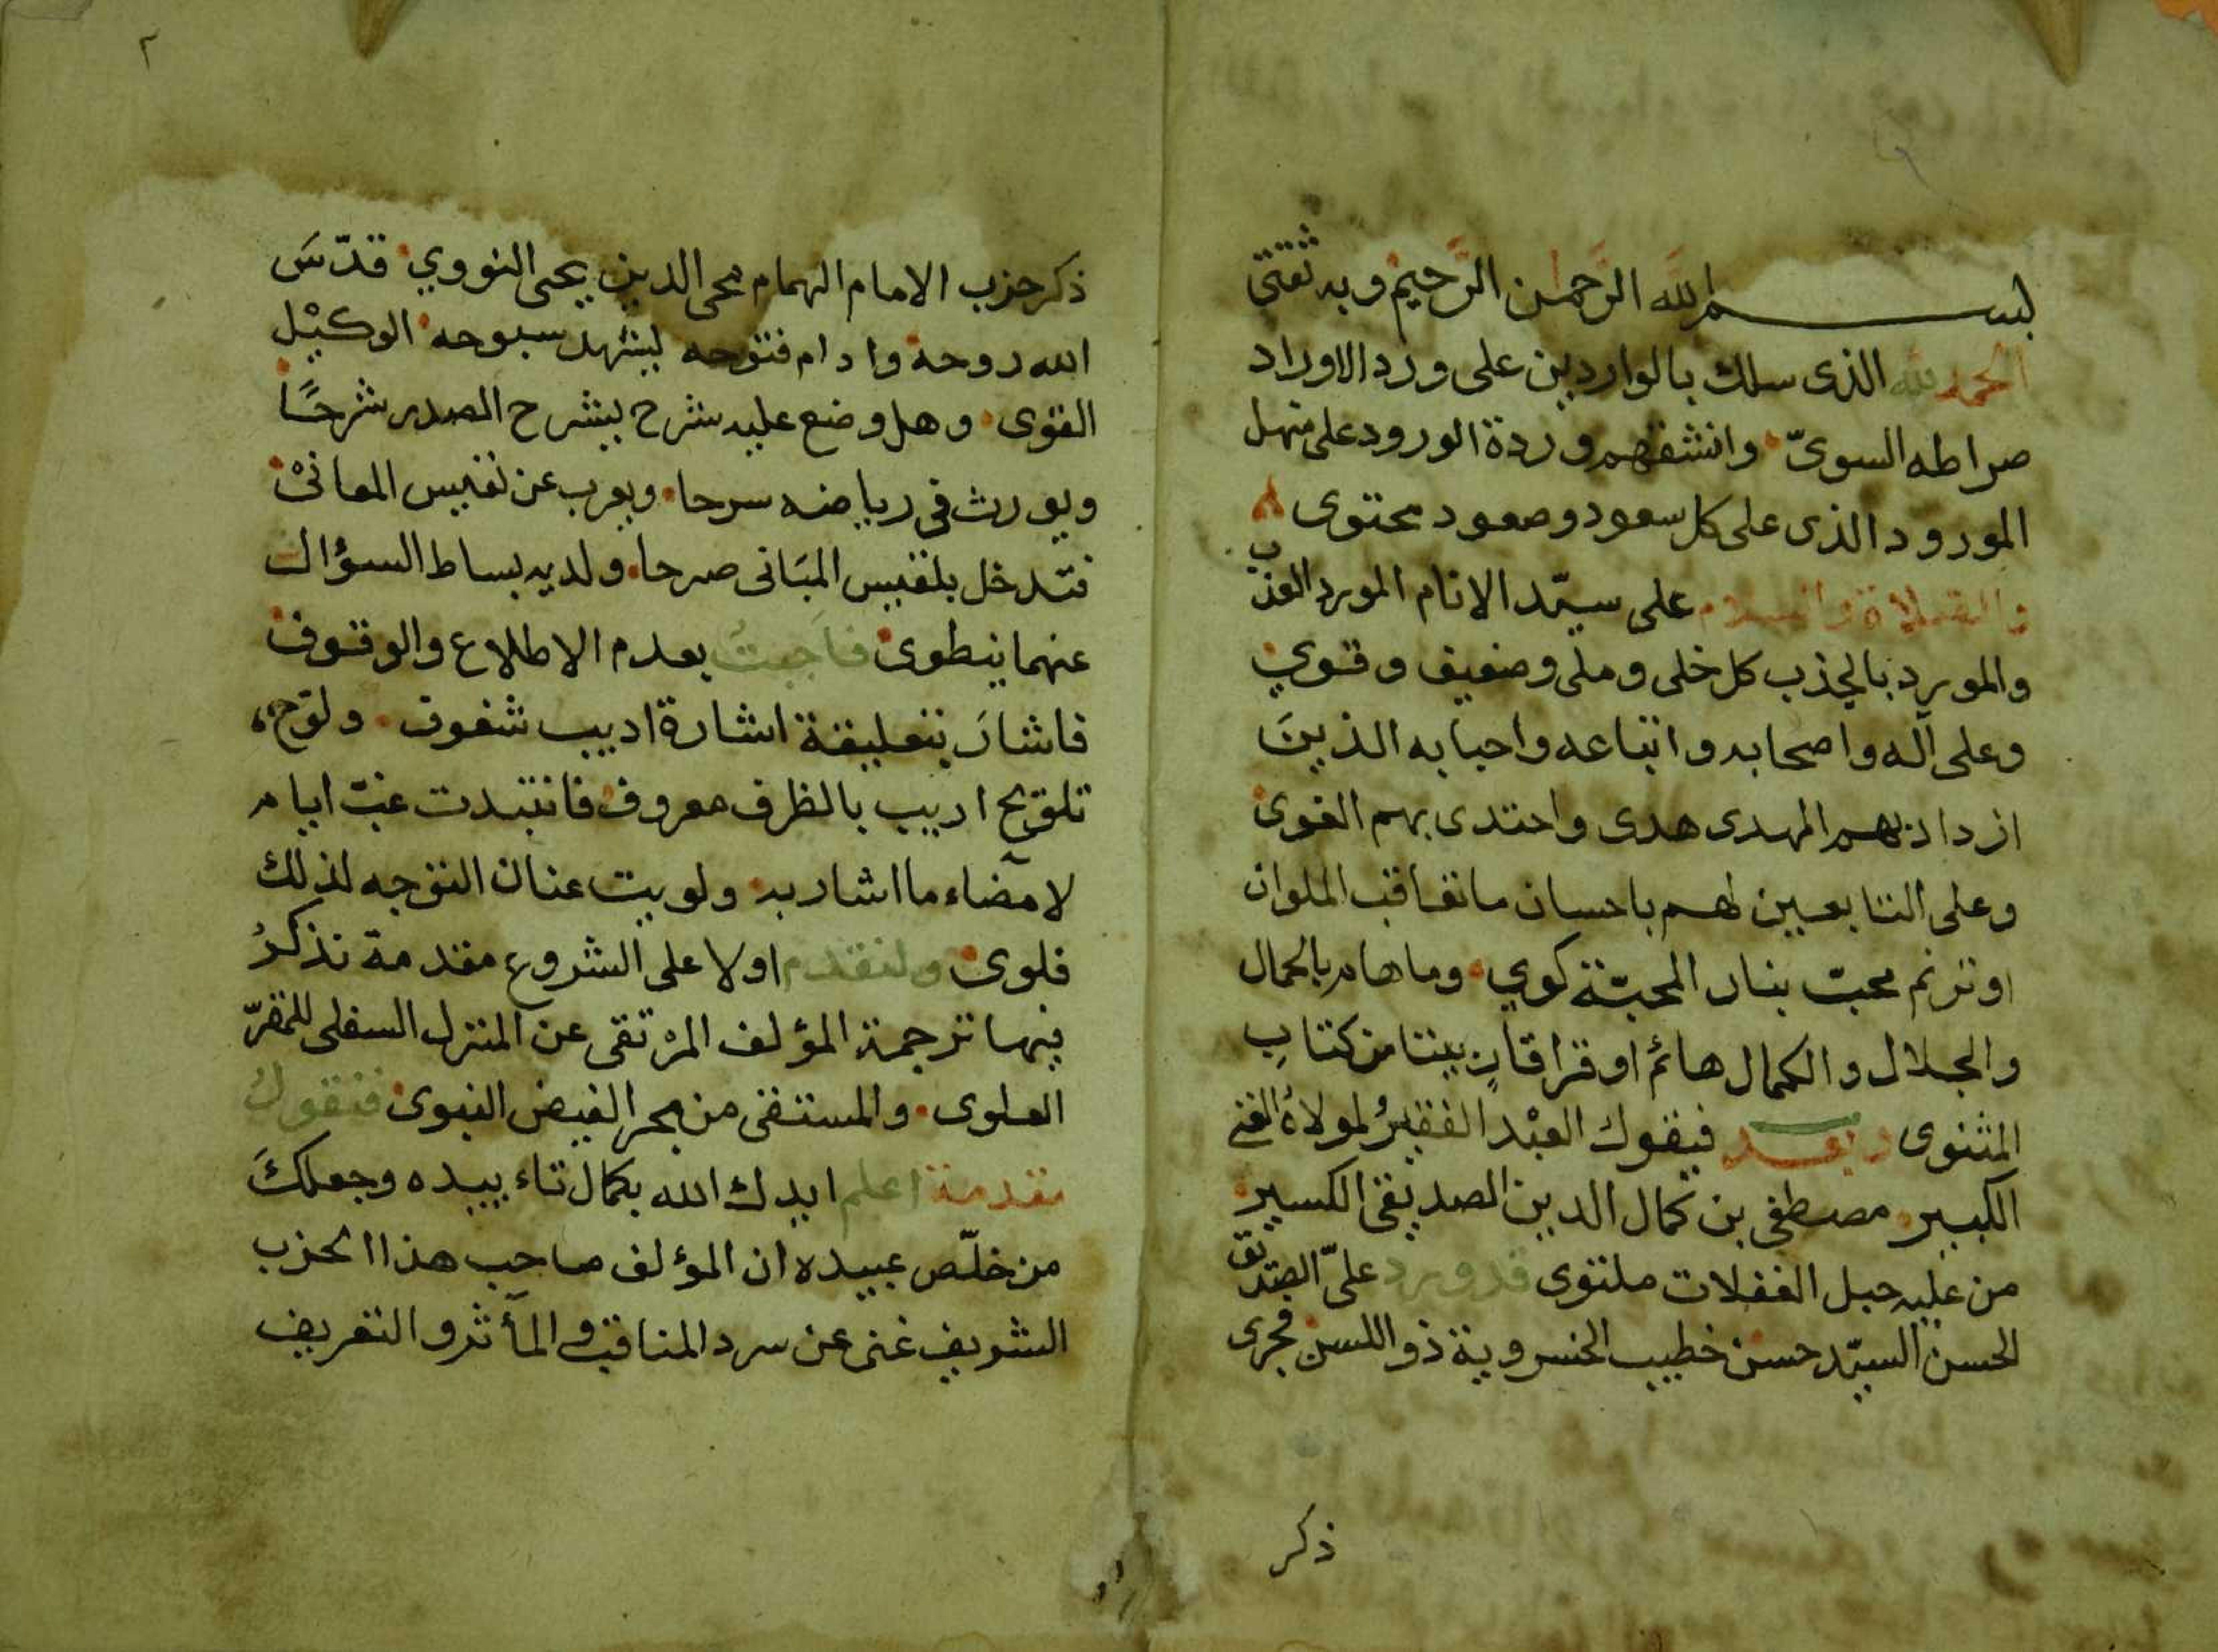 بسم الله الرحمن الرحيم وبه ثقتي
الحمد لله الذى سلك بالواردين على ورد الاوراد
صراطه السويّ وانشقهم وردة الورود على منهل
المورود الذى على كل سعود وصعود محتوى
والصلاة والسلام على سيّد الانام المورد العذب
والمورد بالجذب كل خلى وملى وضعيف وقوي
وعلى آله واصحابه واتباعه واحبابه الذينَ
ازداد بهم المهدى هدى واهتدى بهم الغوى
وعلى التابعين لهم باحسان ما تعاقب الملوان
او ترنم محبّ بنار المحبّة كوي وما هام بالجمال
والجلال والكمال هائم او قرا قارٍ بيتا من كتابِ
المثنوى وبعد فيقول العبْد الفقيرُ لمولاهُ الغني
الكبير مصطفى بن كمال الدين الصديقى الكسير
من عليه حبل الغفلات ملتوى قد ورد علىّ الصديق
الحسن السيّد حسن خطيب الخسروية ذو اللسن فجرى
ذكر
٢
ذكر حزب الامام الهمام محى الدين يحيى النووي قدّسَ
الله روحه وادام فتوحه ليشهد سبوحه الوكيْل
القوى وهل وضع عليه شرح ليشرح الصدر شرحًا
ويورث فى رياضه سرحا ويعرب عن نفيس المعانىْ
فتدخل بلقيس المبَانى صرحا ولديه بساط السؤال
عنهما ينطوى فاجبتُ بعدم الاطلاع والوقوف
فاشارَ بتعليقة اشارة اديب شغوف ولوّح
تلويح اديب بالظرف معروف فانتبدت غبّ ايام
لامضاء ما اشار به ولويت عنان التوجه لذلك
فلوى ولنقدم اولا على الشروع مقدمة نذكرُ
فيها ترجمة المؤلف المرْتقى عن المنزل السفلى للمقرّ
العلوى والمستقى من بحر الفيض النبوى فنقولُ
مقدمة اعلم ايدك الله بكمال تاء ييده وجعلكَ
من خلّص عبيده ان المؤلف صاحب هذا الحزب
الشريف غنى عن سرد المناقب والمآثر والتعريف